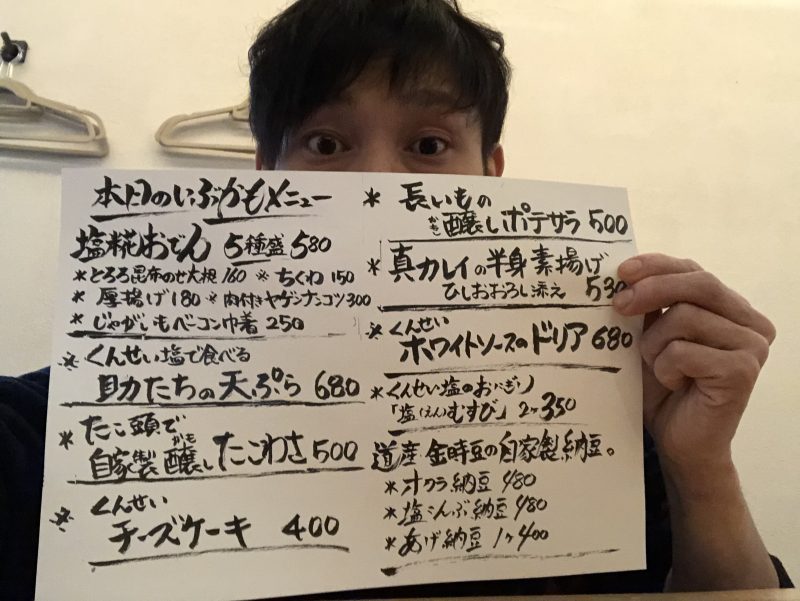 本日のいぶかもメニュー
塩糀おでん 5種盛580
*とろろ昆布のせ大根160 *ちくわ150
*厚揚げ180 *肉付きヤゲンナンコツ300
*じゃがいもベーコン巾着 250
*くんせい塩で食べる
助たちの天ぷら 680
*たこ頭で
自家製 醸したこわさ500
かも
*くんせい
チーズケーキ 400
*長いもの
醸しポテサラ 500
かも
*真カレイの半身素揚げ
ひしおおろし添え 530
*くんせい
ホワイトソースのドリア680
*くんせい塩のおにぎり
「塩(えん)むすび」2ヶ350
道産 金時豆の自家製納豆。
*オクラ納豆 480
*塩こんぶ納豆 480
*あげ納豆 1ヶ400